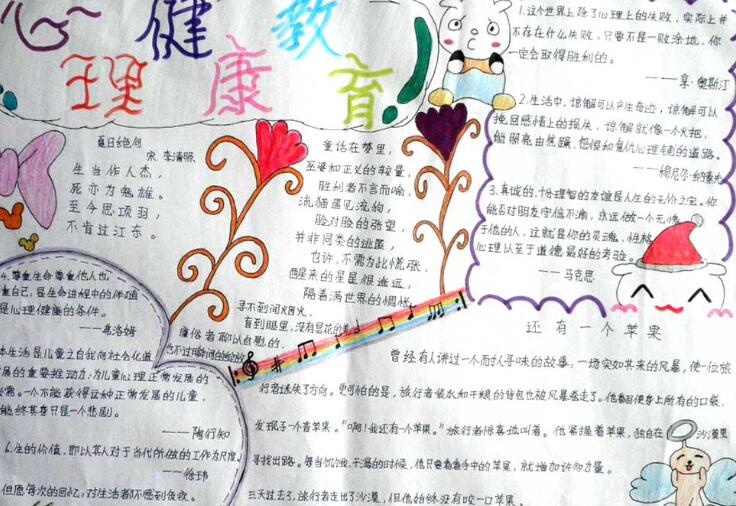 心理健康教育
夏日绝句
宋 李清照
生当作人杰,
死亦为鬼雄。
至今思项羽,
不肯过江东。
童话在梦里,
巫婆和正义的较量,
胜利者不言而喻,
流猫遇见流狗,
脸对脸的张望,
并非同类的逃匿,
也许,不需为此慌张,
醒来的星星很遥远,
隔着满世界的惆怅
寻不到间烟火,
盲到眼里,没有昙花的
庸俗者 聊以自慰的,
也不过瞬间的
1.这个世界上除了心理上的失败,实际上并
不存在什么失败,只要不是一败涂地,你
一定会取得胜利的。
——亨·奥斯汀
2.生活中,谅解可以产生奇迹,谅解可以
挽回感情上的损失,谅解就像一个火把,
能照亮由焦躁、怨恨和复仇心理铺的道路。
——穆尼尔·纳素夫
3.真诚的、十分理智的友谊是人生的无价之宝。你
能否对朋友守信不渝,永远做一个无愧
于他的人,这就是你的灵魂、性格、
心理以至于道德最好的考验。
——马克思
4.尊重生命、尊重他人也
重自己,是生命进程中的伴随
是心理健康的条件。
——弗洛姆
本生活是儿童之自我向社会化道
展的重要推动力;为儿童心理正常发展的
必需。一个不能获得这种正常发展的儿童,
能终其身只是一个悲剧。
——陶行知
6.生的价值,即以其人对于当代所做的工作为尺度。
——徐玮
但愿每次的回忆,对生活都不感到负疚。
还有一个苹果
曾经有人讲过一个耐人寻味的故事:一场突如其来的风暴,使一位旅
行者迷失了方向。更可怕的是,旅行者装水和干粮的背包也被风暴卷走了。他翻遍身上所有的口袋,
发现了一个青苹果。“啊!我还有一个苹果。”旅行者惊喜地叫着。他紧握着苹果,独自在沙漠里
寻找出路。每当饥饿、干渴的时候,他只要看看手中的苹果,就增加许多力量。
三天过去了,旅行者走出了沙漠,但他始终没有咬一口苹果。